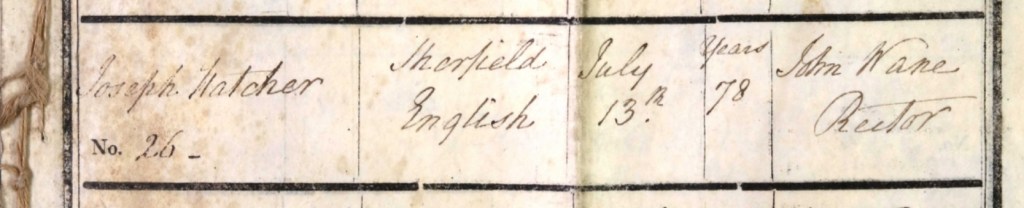 Joseph Hatcher
No. 26 -
Sherfield
English
July
13.th
Years
78
John Wane
Rector